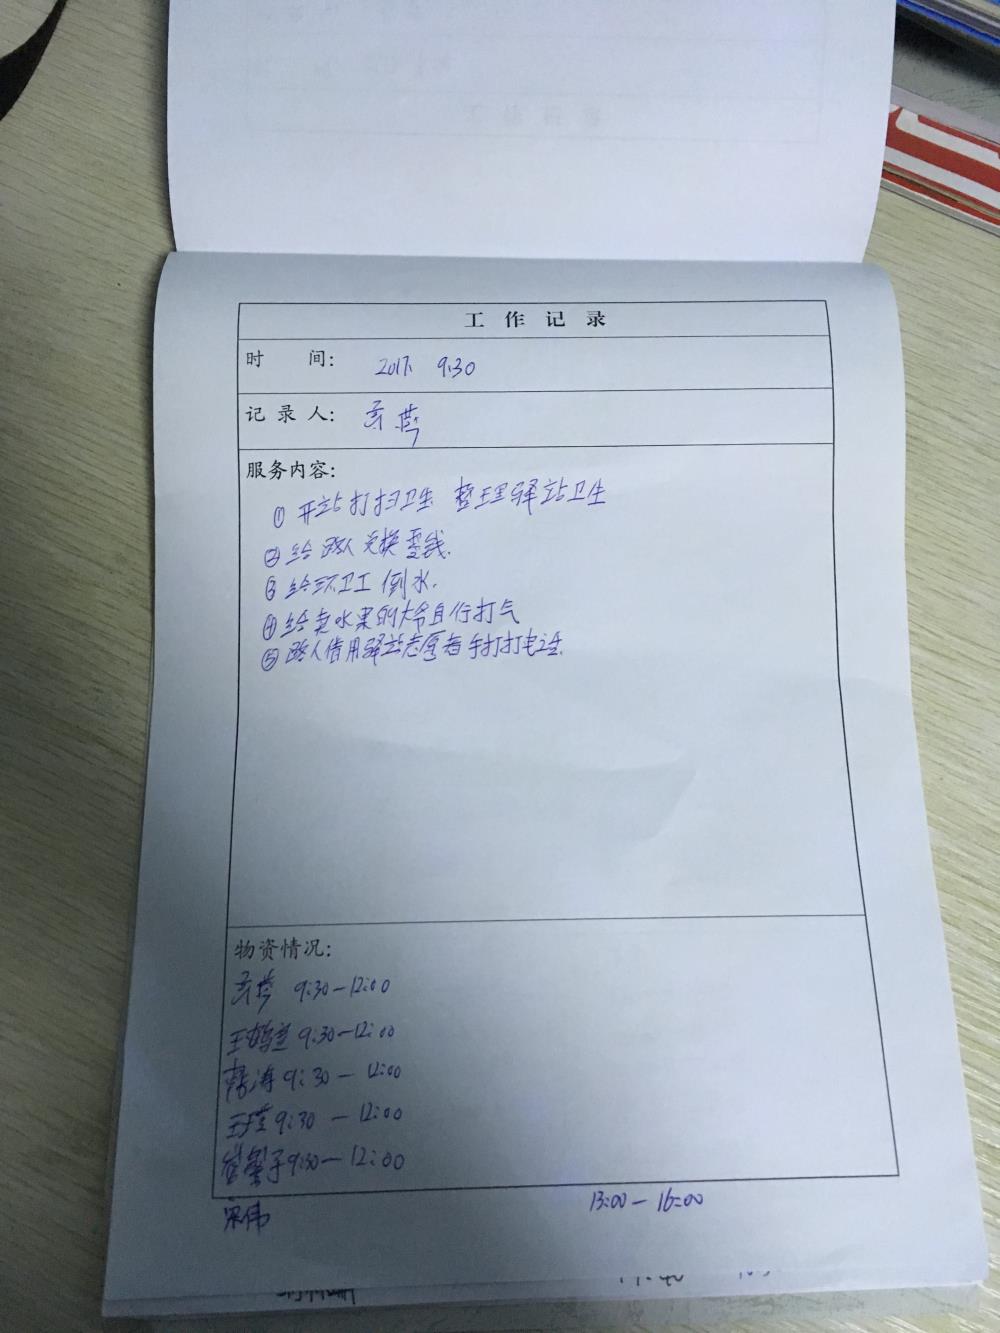 工作记录
时 间： 2017. 9.30
记录人：
服务内容：
① 开站打扫卫生 整理驿站卫生
② 给路人兑换零钱.
③ 给环卫工倒水.
④ 给卖水果的大爷自行打气
⑤ 路人借用驿站志愿者手打打电话.
物资情况：
9:30—12:00
王鹤兰 9:30—12:00
涛 9:30—12:00
王瑾 9:30—12:00
子 9:30—12:00
宋伟 13:00—16:00